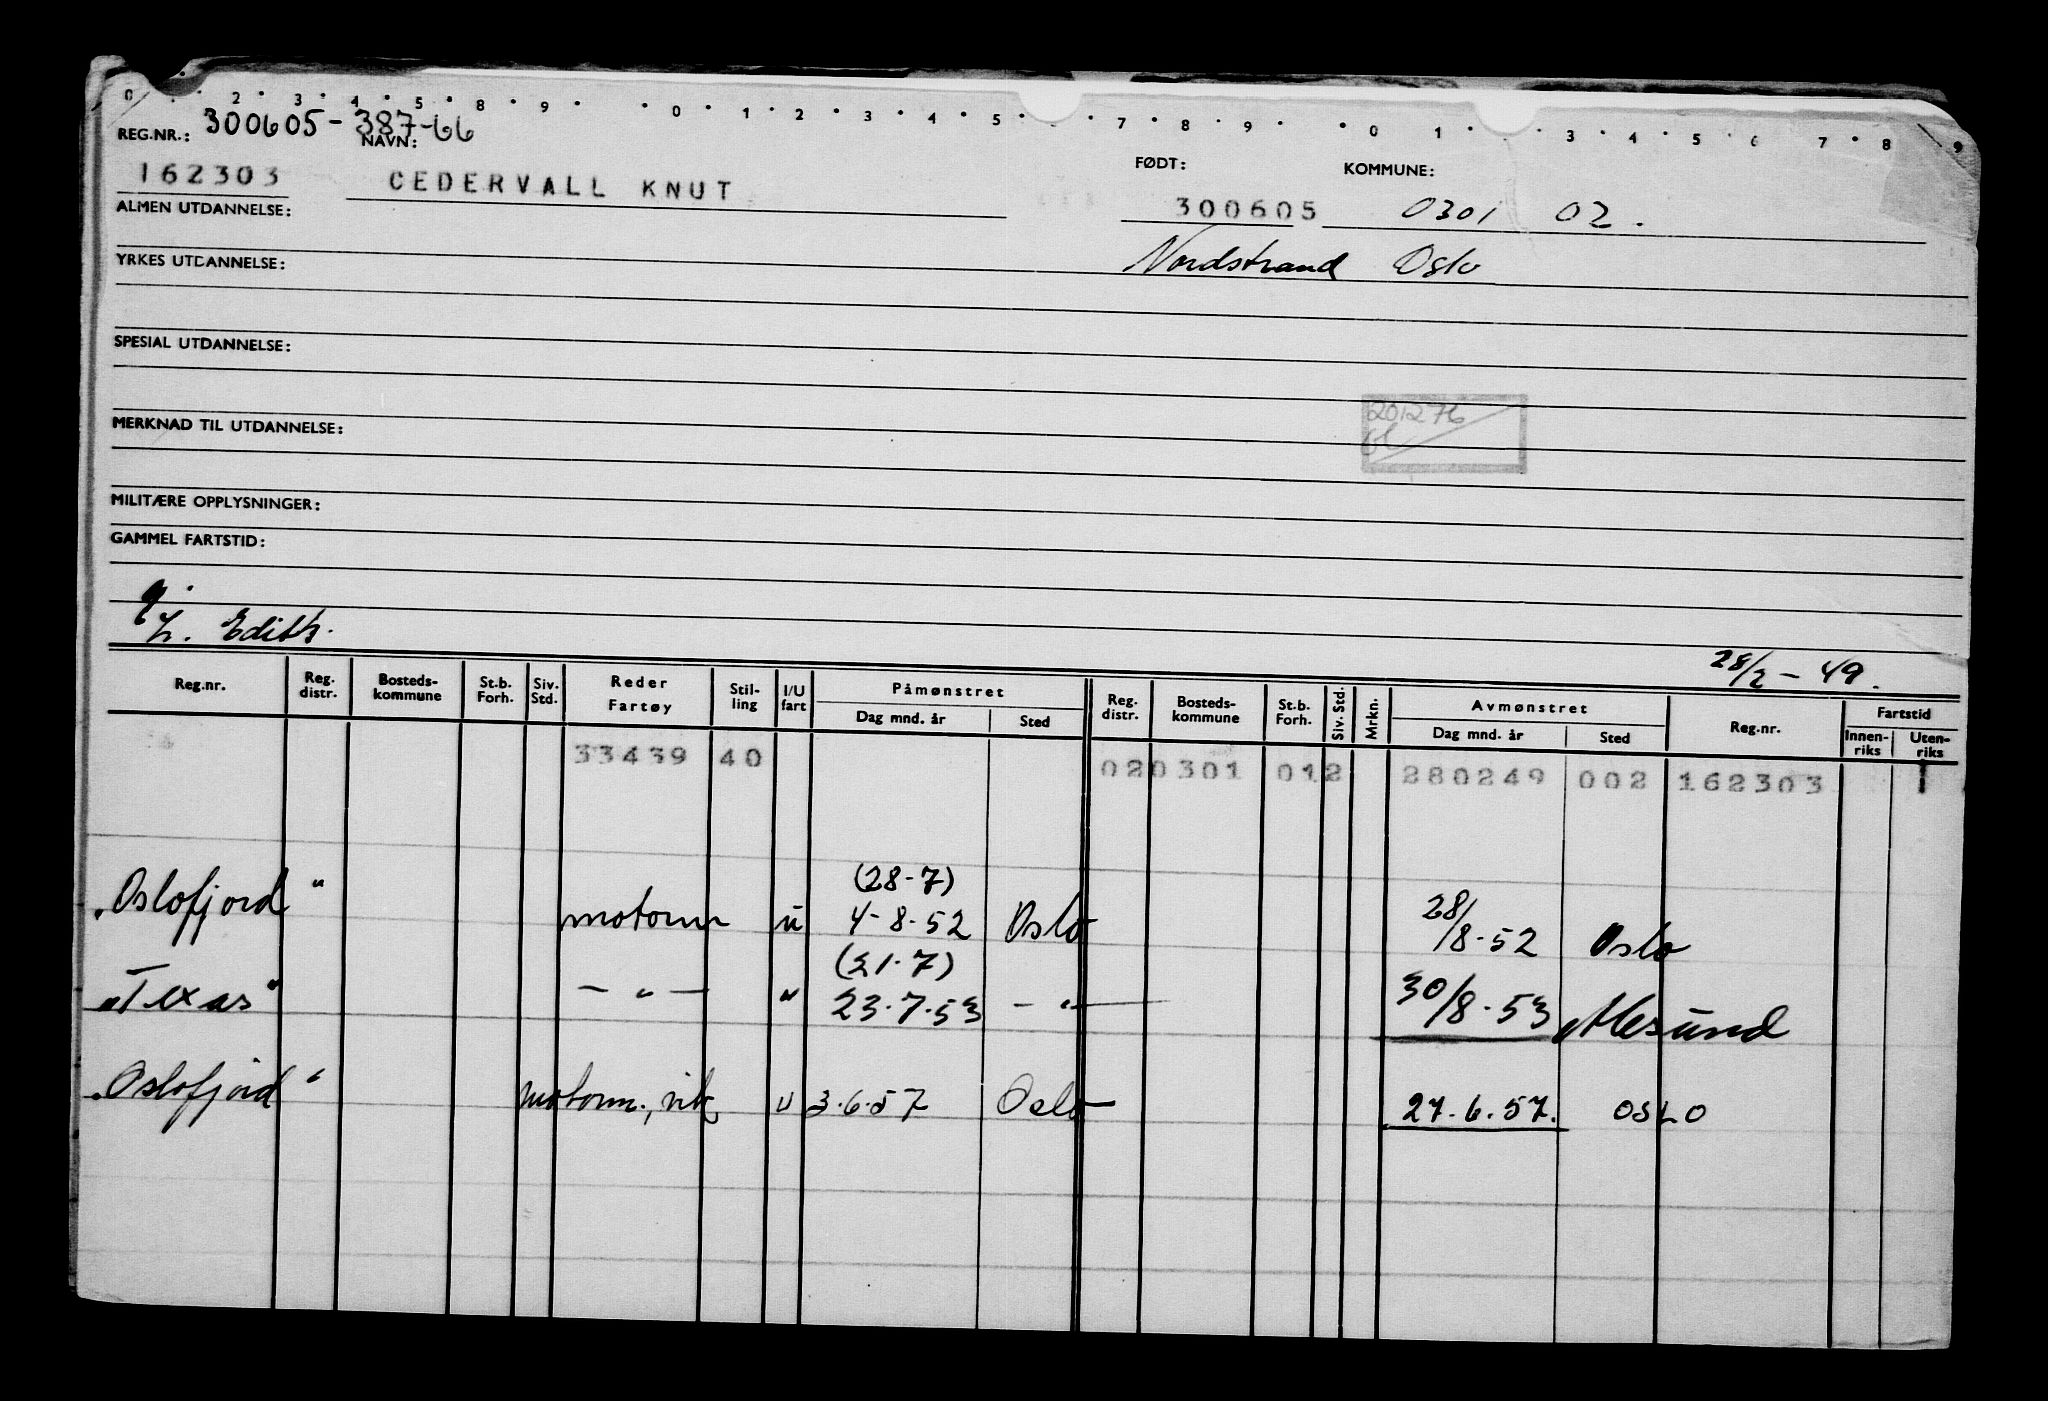 0 2 3 4 5 8 9 0 1 2 3 4 5 7 8 9 0 1 3 4 5 6 7 8 9
REG.NR.: 300605-387-66 NAVN: FØDT: KOMMUNE:
162303 CEDERVALL KNUT 300605 0301 02.
ALMEN UTDANNELSE:
Nordstrand Oslo
YRKES UTDANNELSE:
SPESIAL UTDANNELSE:
201276
MERKNAD TIL UTDANNELSE:
MILITÆRE OPPLYSNINGER:
GAMMEL FARTSTID:
Edith.
28/2 - 49.
Reg.nr. Reg. distr. Bosteds-kommune St.b. Forh. Siv. Std. Reder Fartøy Stil-ling I/U fart Påmønstret Dag mnd. år Sted Reg. distr. Bosteds-kommune St.b. Forh. Siv. Std. Mrkn. Avmønstret Dag mnd. år Sted Reg.nr. Fartstid Innen-riks Uten-riks
33439 40 020301 012 280249 002 162303 1
(28-7)
"Oslofjord" motorm u 4-8-52 Oslo 28/8-52 Oslo
(21.7)
"Texas" — " — " 23.7.53 — " — 30/8-53 Ålesund
"Oslofjord" motorm., vik u 3.6.57 Oslo 27.6.57. OSLO